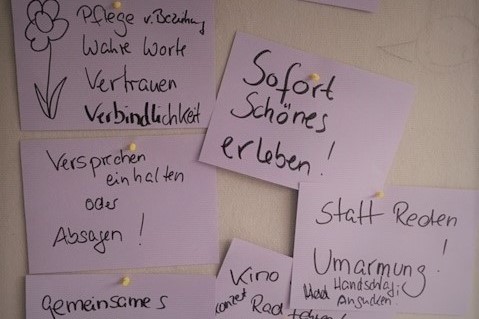 Pflege v. Beziehung
Wahre Worte
Vertrauen
Verbindlichkeit
Sofort
Schönes
erleben!
Versprechen
einhalten
oder
Absagen!
Statt Reden
!
Umarmung
Handschlag;
Angucken.
Kino
Konzert Rad
Gemeinsames